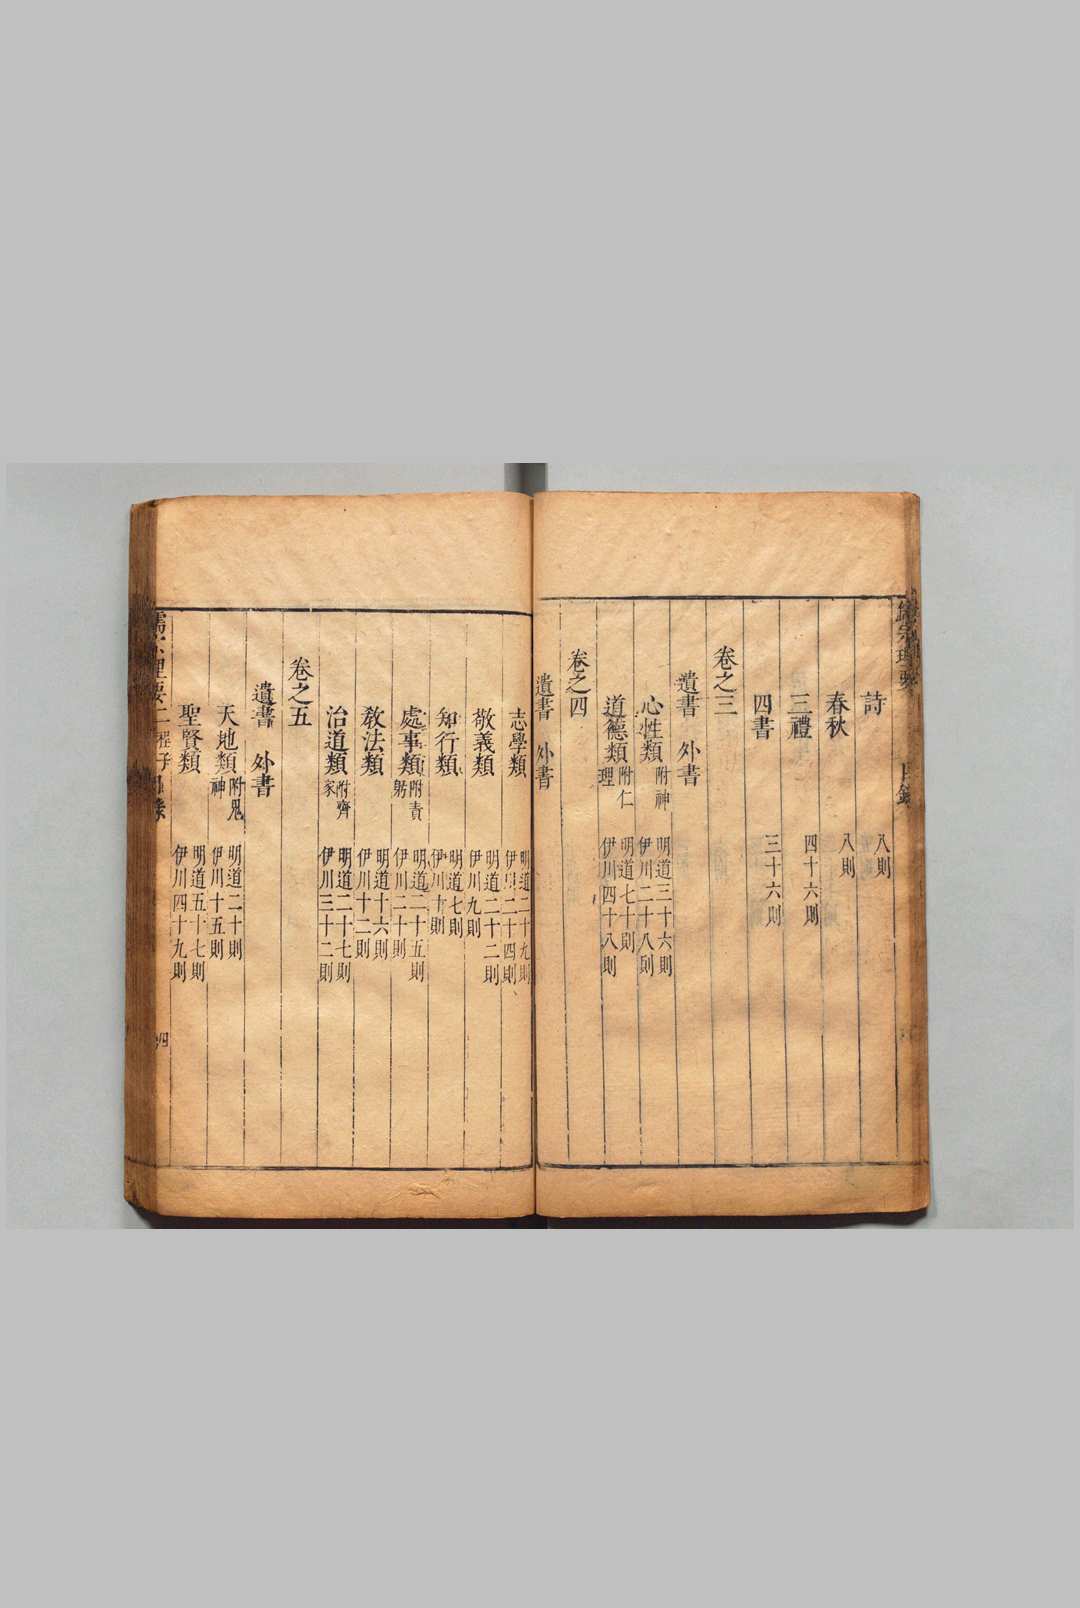 儒宗理要 目錄
詩 八則
春秋 八則
三禮 四十六則
四書 三十六則
卷之三
遺書 外書
心性類 附神 明道三十六則 伊川二十八則
道德類 附仁理 明道七十則 伊川四十八則
卷之四
遺書 外書
志學類 明道二十九則 伊川二十四則
敬義類 明道二十二則 伊川九則
知行類 明道七則 伊川十則
處事類 附責躬 明道二十五則 伊川二十則
敎法類 明道十六則 伊川十二則
治道類 附齊家 明道二十七則 伊川三十二則
卷之五
遺書 外書
天地類 附鬼神 明道二十則 伊川十五則
聖賢類 明道五十七則 伊川四十九則
儒宗理要 二程子目錄 四